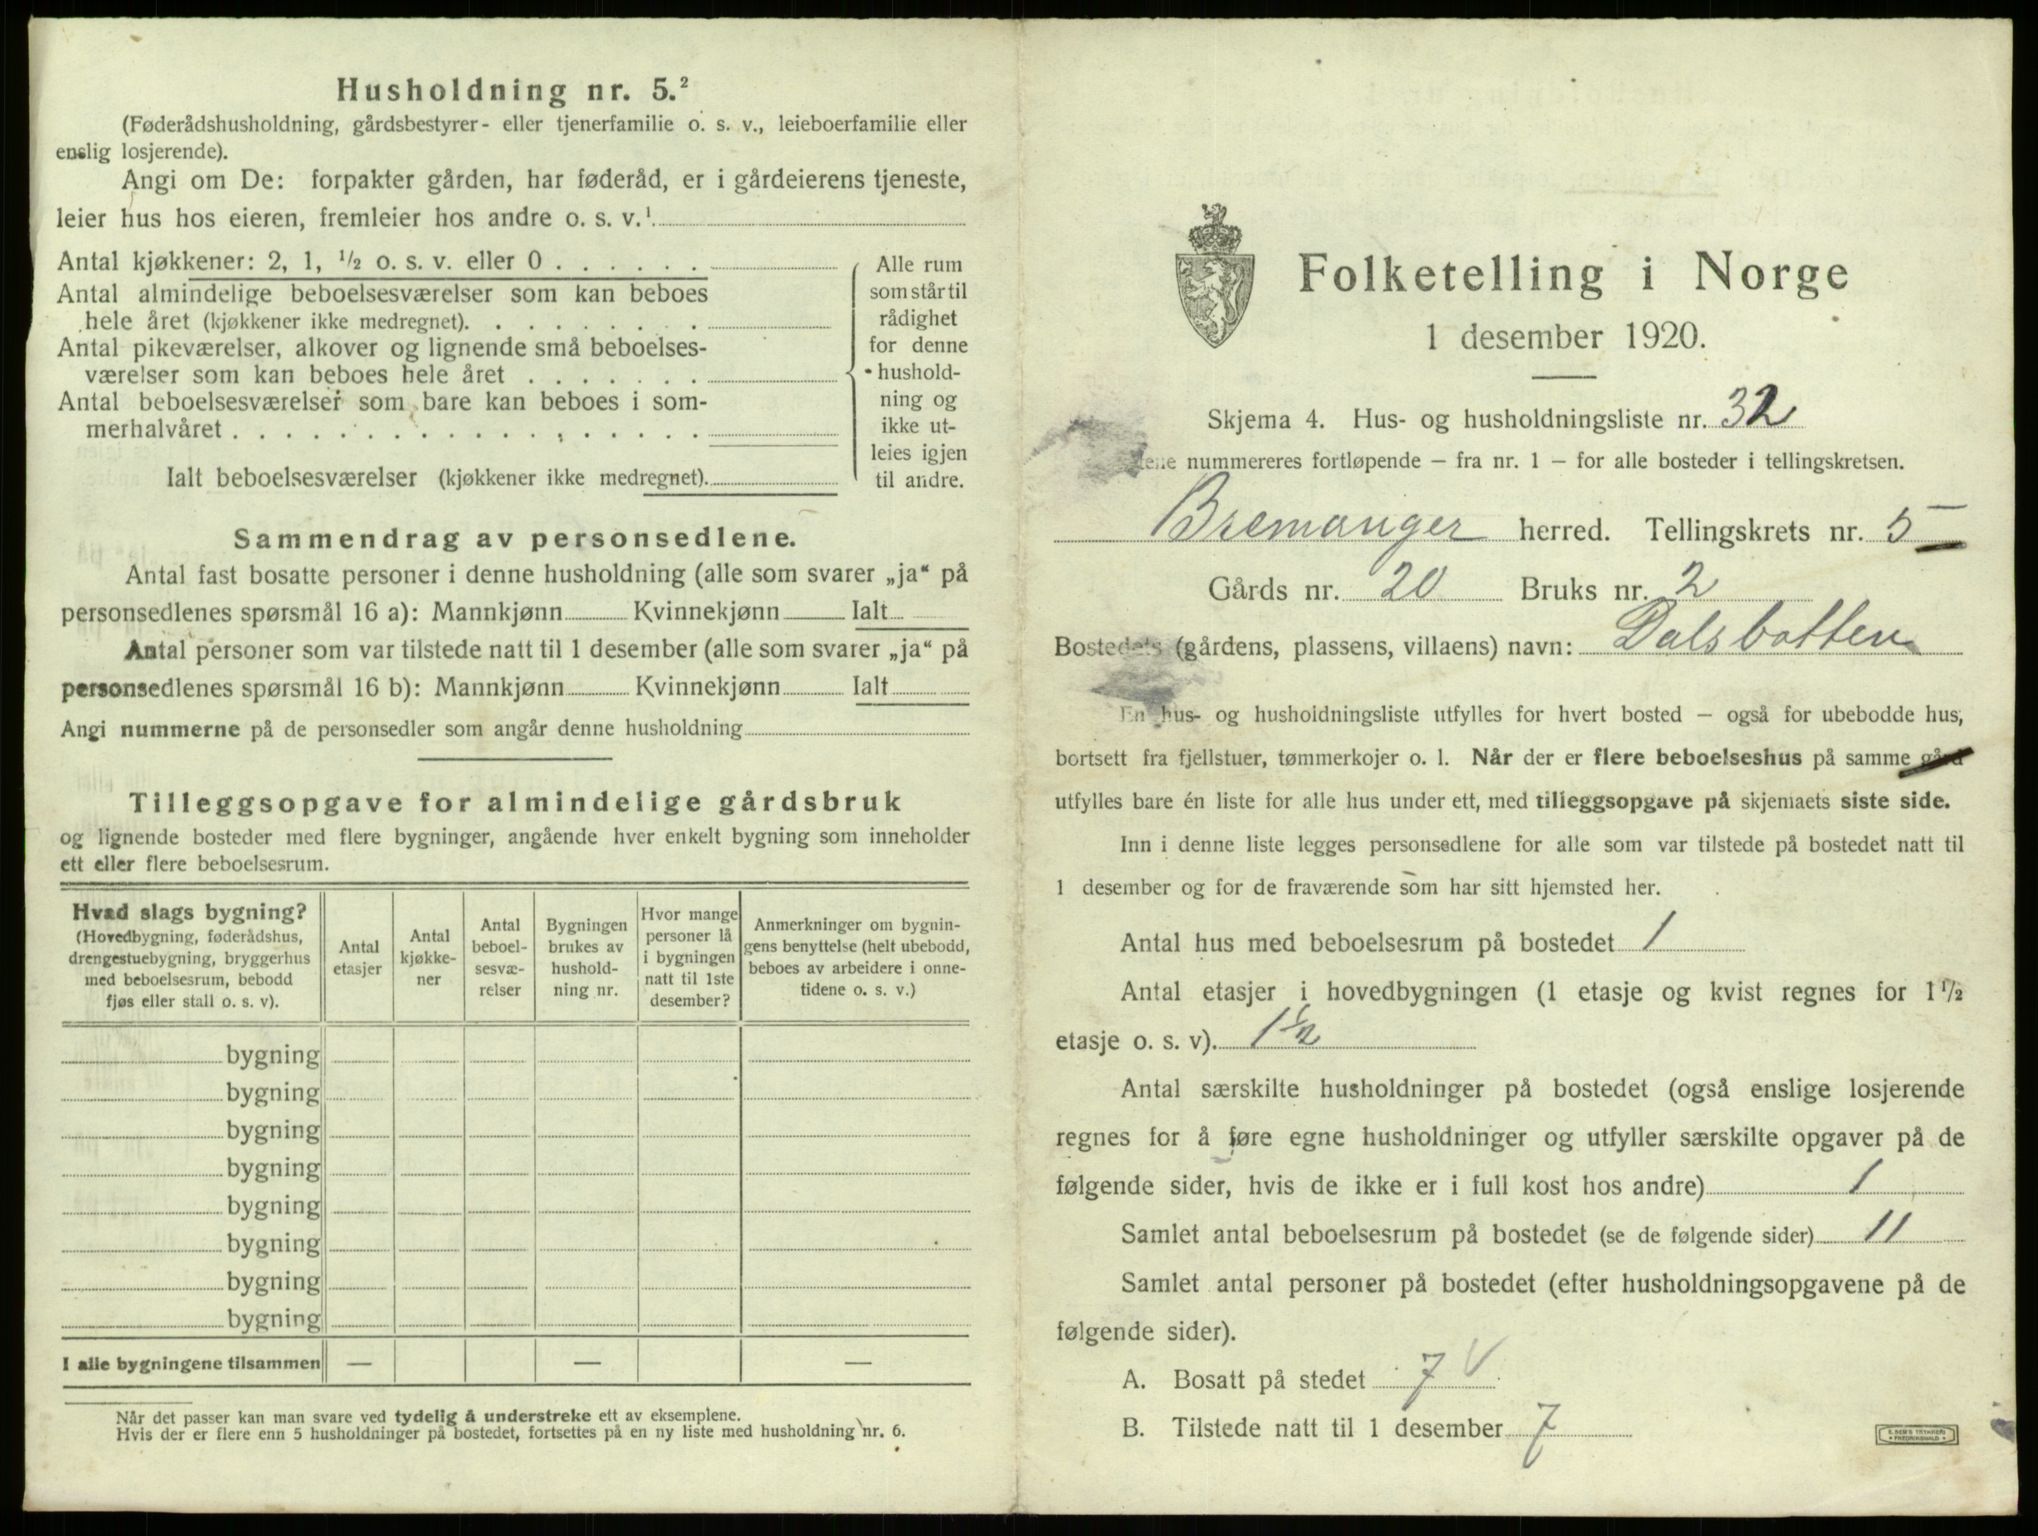 Husholdning nr. 5.²
(Føderådshusholdning, gårdsbestyrer- eller tjenerfamilie o. s. v., leieboerfamilie eller
enslig losjerende).
Angi om De: forpakter gården, har føderåd, er i gårdeierens tjeneste,
leier hus hos eieren, fremleier hos andre o. s. v.¹
Antal kjøkkener: 2, 1, ½ o. s. v. eller 0 . . . . . .
Antal almindelige beboelsesværelser som kan beboes
hele året (kjøkkener ikke medregnet). . . . . . . . .
Antal pikeværelser, alkover og lignende små beboelses-
værelser som kan beboes hele året . . . . . . .
Antal beboelsesværelser som bare kan beboes i som-
merhalvåret . . . . . . . . . . . . . . . . . .
Ialt beboelsesværelser (kjøkkener ikke medregnet).
Alle rum
som står til
rådighet
for denne
hushold-
ning og
ikke ut-
leies igjen
til andre.
Sammendrag av personsedlene.
Antal fast bosatte personer i denne husholdning (alle som svarer „ja“ på
personsedlenes spørsmål 16 a): Mannkjønn Kvinnekjønn Ialt
Antal personer som var tilstede natt til 1 desember (alle som svarer „ja“ på
personsedlenes spørsmål 16 b): Mannkjønn Kvinnekjønn Ialt
Angi nummerne på de personsedler som angår denne husholdning
Tilleggsopgave for almindelige gårdsbruk
og lignende bosteder med flere bygninger, angående hver enkelt bygning som inneholder
ett eller flere beboelsesrum.
Hvad slags bygning?
(Hovedbygning, føderådshus,
drengestuebygning, bryggerhus
med beboelsesrum, bebodd
fjøs eller stall o. s. v).
Antal
etasjer
Antal
kjøkke-
ner
Antal
beboel-
sesvæ-
relser
Bygningen
brukes av
hushold-
ning nr.
Hvor mange
personer lå
i bygningen
natt til 1ste
desember?
Anmerkninger om bygnin-
gens benyttelse (helt ubebodd,
beboes av arbeidere i onne-
tidene o. s. v.)
bygning
bygning
bygning
bygning
bygning
bygning
bygning
bygning
I alle bygningene tilsammen — — —
Når det passer kan man svare ved tydelig å understreke ett av eksemplene.
Hvis der er flere enn 5 husholdninger på bostedet, fortsettes på en ny liste med husholdning nr. 6.
Folketelling i Norge
1 desember 1920.
Skjema 4. Hus- og husholdningsliste nr. 32
nummereres fortløpende — fra nr. 1 — for alle bosteder i tellingskretsen.
Bremanger herred. Tellingskrets nr. 5
Gårds nr. 20 Bruks nr. 2
Bostedets (gårdens, plassens, villaens) navn: Dalsbotten
En hus- og husholdningsliste utfylles for hvert bosted — også for ubebodde hus,
bortsett fra fjellstuer, tømmerkojer o. l. Når der er flere beboelseshus på samme gård
utfylles bare én liste for alle hus under ett, med tilleggsopgave på skjemaets siste side.
Inn i denne liste legges personsedlene for alle som var tilstede på bostedet natt til
1 desember og for de fraværende som har sitt hjemsted her.
Antal hus med beboelsesrum på bostedet 1
Antal etasjer i hovedbygningen (1 etasje og kvist regnes for 1½
etasje o. s. v). 1½
Antal særskilte husholdninger på bostedet (også enslige losjerende
regnes for å føre egne husholdninger og utfyller særskilte opgaver på de
følgende sider, hvis de ikke er i full kost hos andre) 1
Samlet antal beboelsesrum på bostedet (se de følgende sider) 11
Samlet antal personer på bostedet (efter husholdningsopgavene på de
følgende sider).
A. Bosatt på stedet 7 V
B. Tilstede natt til 1 desember 7